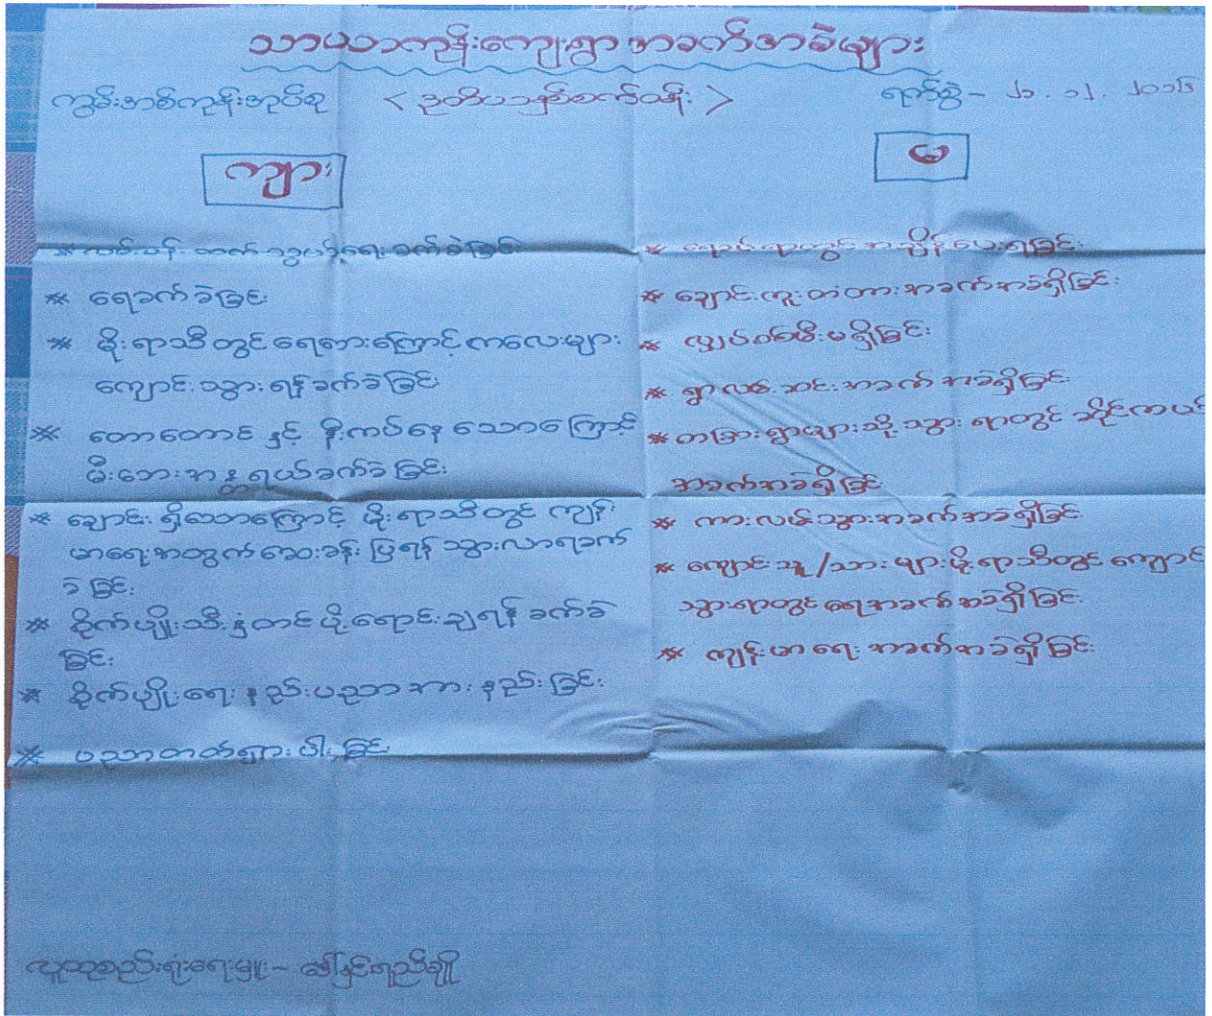 သာယာကုန်းကျေးရွာ အခက်အခဲများ
ကွမ်းအစ်ကုန်းအုပ်စု < ဒုတိယနှစ်စက်ဝန်း > ရက်စွဲ - ၂၁.၁၂.၂၀၁၆
ကျား
* လမ်းပန်း ဆက်သွယ်ရေး ခက်ခဲခြင်း
* ရေခက်ခဲခြင်း
* မိုးရာသီတွင် ရေစားကြောင့် ကလေးများ
ကျောင်းသွားရန် ခက်ခဲခြင်း
* တောတောင် နှင့် နီးကပ်နေသောကြောင့်
မီးဘေးအန္တရယ် ခက်ခဲခြင်း
* ချောင်းရှိသောကြောင့် မိုးရာသီတွင် ကျန်း
မာရေးအတွက် ဆေးခန်းပြရန် သွားလာရခက်
ခဲခြင်း
* စိုက်ပျိုးသီးနှံတင်ပို့ရောင်းချရန် ခက်ခဲ
ခြင်း
* စိုက်ပျိုးရေးနည်းပညာအားနည်းခြင်း
* ပညာတတ်ရှားပါးခြင်း
မ
* ရေခပ်ရာတွင် အချိန်ပေးရခြင်း
* ချောင်းကူးတံတားအခက်အခဲရှိခြင်း
* လျှပ်စစ်မီးမရှိခြင်း
* ရွာလမ်း အခက်အခဲရှိခြင်း
* တခြားရွာများသို့ သွားရာတွင် ဆိုင်ကယ်
အခက်အခဲရှိခြင်း
* ကားလမ်းသွားအခက်အခဲရှိခြင်း
* ကျောင်းသူ/သားများမိုးရာသီတွင် ကျောင်း
သွားရာတွင် ရေအခက်အခဲရှိခြင်း
* ကျန်းမာရေး အခက်အခဲရှိခြင်း
လူထုစည်းရုံးရေးမှူး -